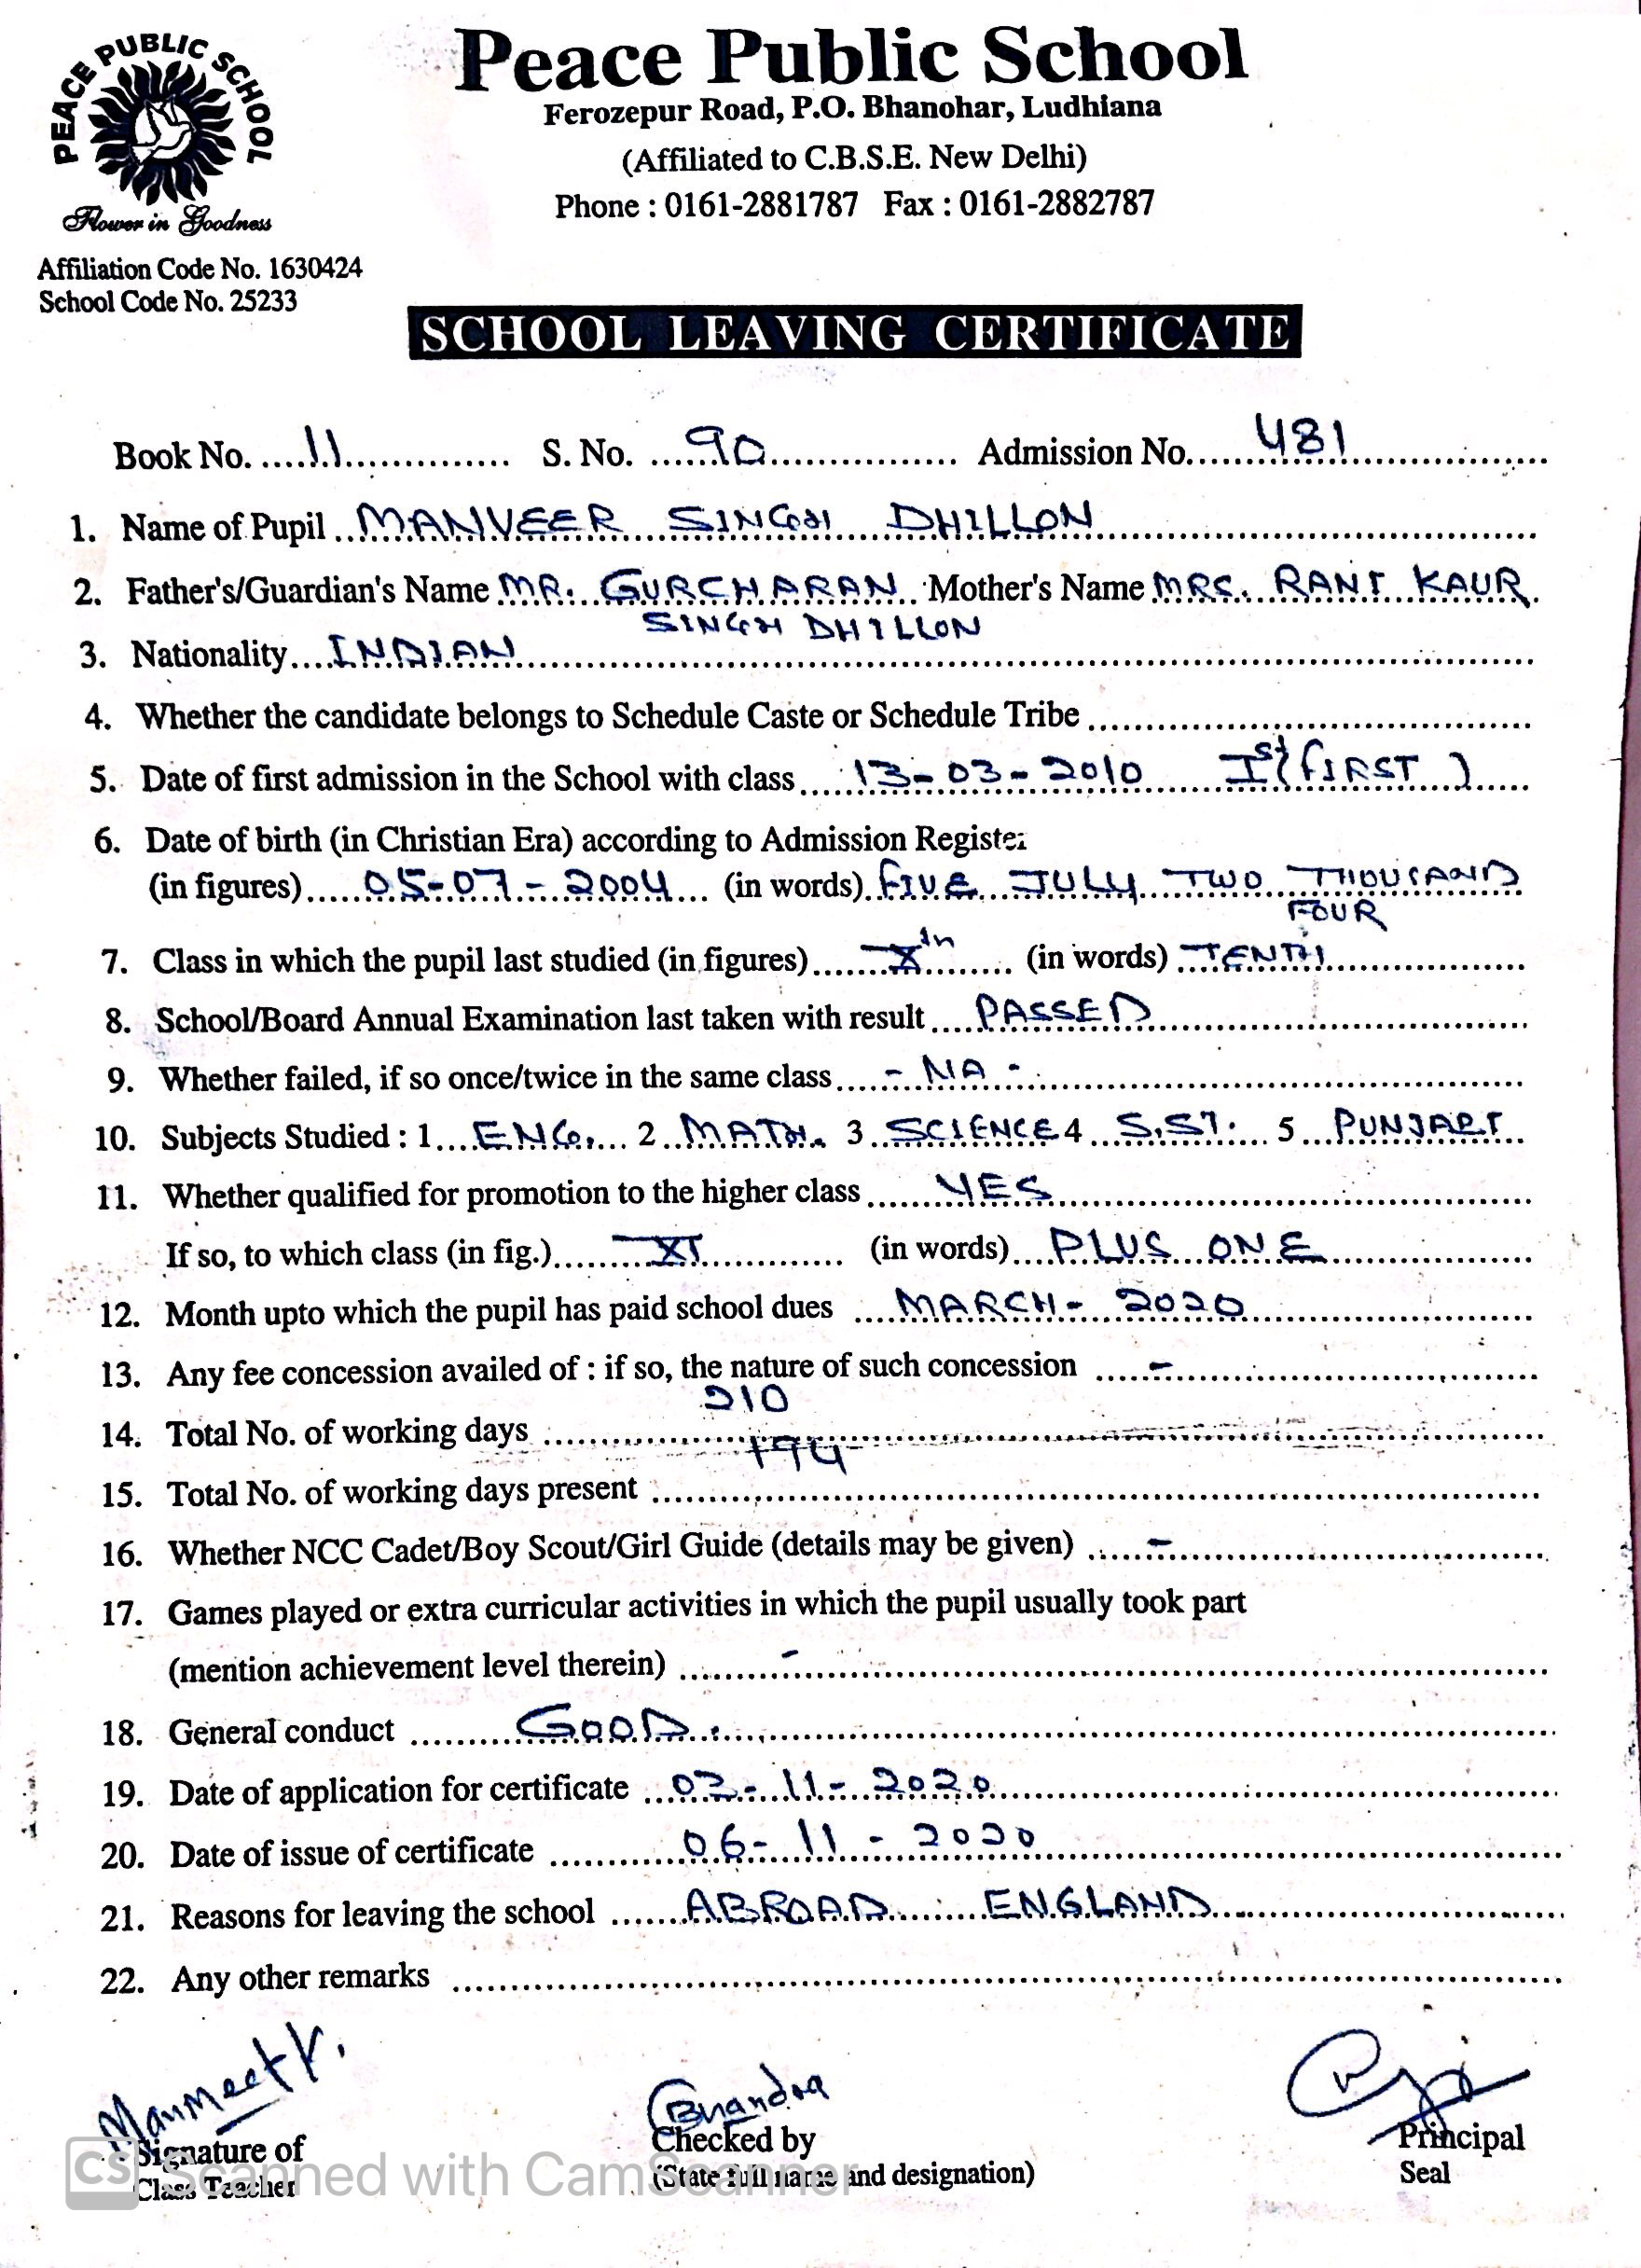 PEACE PUBLIC SCHOOL
Flower in Goodness
Affiliation Code No. 1630424
School Code No. 25233
Peace Public School
Ferozepur Road, P.O. Bhanohar, Ludhiana
(Affiliated to C.B.S.E. New Delhi)
Phone : 0161-2881787 Fax : 0161-2882787
SCHOOL LEAVING CERTIFICATE
Book No. 11 S. No. 90 Admission No. 481
1. Name of Pupil MANVEER SINGH DHILLON
2. Father's/Guardian's Name MR. GURCHARAN Mother's Name MRS. RANI KAUR
SINGH DHILLON
3. Nationality INDIAN
4. Whether the candidate belongs to Schedule Caste or Schedule Tribe
5. Date of first admission in the School with class 13-03-2010 Ist (FIRST)
6. Date of birth (in Christian Era) according to Admission Register
(in figures) 05-07-2004 (in words) FIVE JULY TWO THOUSAND
FOUR
7. Class in which the pupil last studied (in figures) Xth (in words) TENTH
8. School/Board Annual Examination last taken with result PASSED
9. Whether failed, if so once/twice in the same class - NA -
10. Subjects Studied : 1 ENG. 2 MATH. 3 SCIENCE 4 S.ST. 5 PUNJABI
11. Whether qualified for promotion to the higher class YES
If so, to which class (in fig.) XI (in words) PLUS ONE
12. Month upto which the pupil has paid school dues MARCH - 2020
13. Any fee concession availed of : if so, the nature of such concession -
14. Total No. of working days 210
194
15. Total No. of working days present
16. Whether NCC Cadet/Boy Scout/Girl Guide (details may be given) -
17. Games played or extra curricular activities in which the pupil usually took part
(mention achievement level therein) -
18. General conduct GOOD.
19. Date of application for certificate 03-11-2020
20. Date of issue of certificate 06-11-2020
21. Reasons for leaving the school ABROAD : ENGLAND
22. Any other remarks
Manmeet K.
Signature of
Class Teacher
Chandra
Checked by
(State full name and designation)
Principal
Seal
CS Scanned with CamScanner